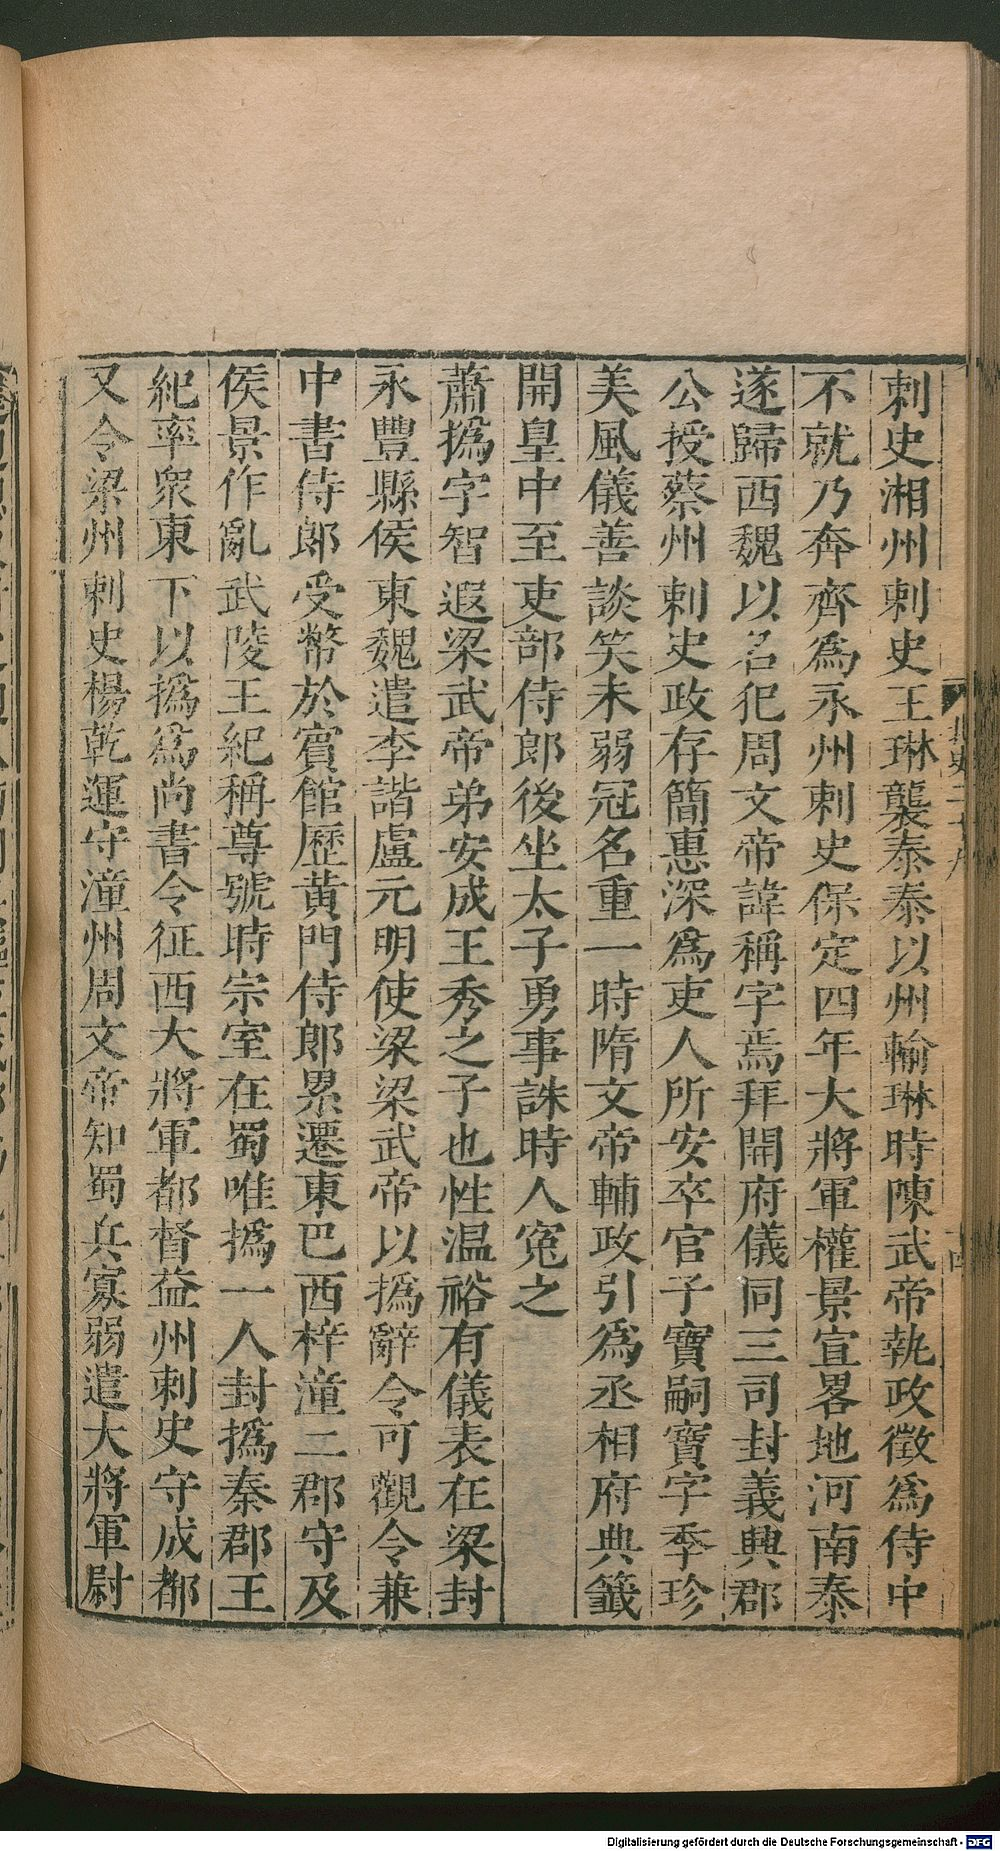 刺史湘州刺史王琳襲泰泰以州輸琳時陳武帝執政徵爲侍中
不就乃奔齊爲永州刺史保定四年大將軍權景宣畧地河南泰
遂歸西魏以名犯周文帝諱稱字焉拜開府儀同三司封義興郡
公授蔡州刺史政存簡惠深爲吏人所安卒官子寶嗣寶字季珍
美風儀善談笑未弱冠名重一時隋文帝輔政引爲丞相府典籤
開皇中至吏部侍郎後坐太子勇事誅時人寃之
蕭撝字智遐梁武帝弟安成王秀之子也性温裕有儀表在梁封
永豐縣侯東魏遣李諧盧元明使梁梁武帝以撝辭令可觀令兼
中書侍郎受幣於賓館歷黄門侍郎累遷東巴西梓潼二郡守及
侯景作亂武陵王紀稱尊號時宗室在蜀唯撝一人封撝秦郡王
紀率衆東下以撝爲尚書令征西大將軍都督益州刺史守成都
又令梁州刺史楊乾運守潼州周文帝知蜀兵寡弱遣大將軍尉
Digitalisierung gefördert durch die Deutsche Forschungsgemeinschaft - DFG